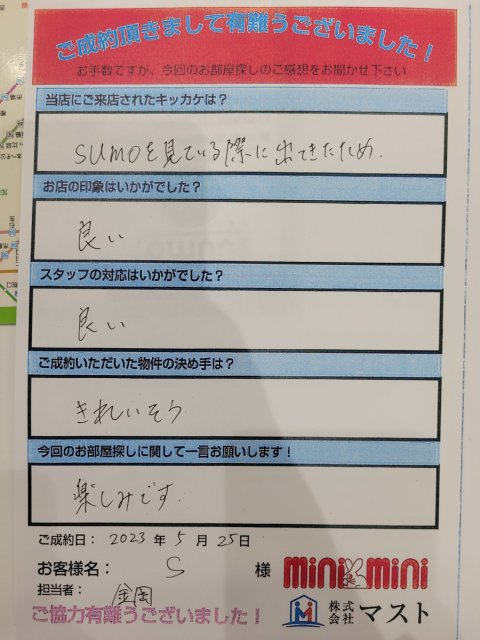 ご成約頂きまして有難うございました！
お手数ですが、今回のお部屋探しのご感想をお聞かせ下さい
当店にご来店されたキッカケは？
SUMOを見ている際に出てきたため.
お店の印象はいかがでした？
良い
スタッフの対応はいかがでした？
良い
ご成約いただいた物件の決め手は？
きれいそう
今回のお部屋探しに関して一言お願いします！
楽しみです.
ご成約日： 2023 年 5 月 25日
お客様名： S 様
担当者： 金岡
minimini
ご協力有難うございました！
株式会社 マスト